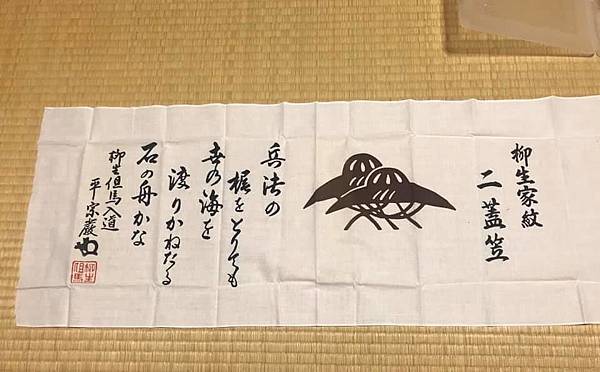 柳生家紋
二蓋笠
兵法の
梶をとりても
世乃海を
渡りかねたる
石の舟かな
柳生但馬入道
平宗嚴
柳生
但馬